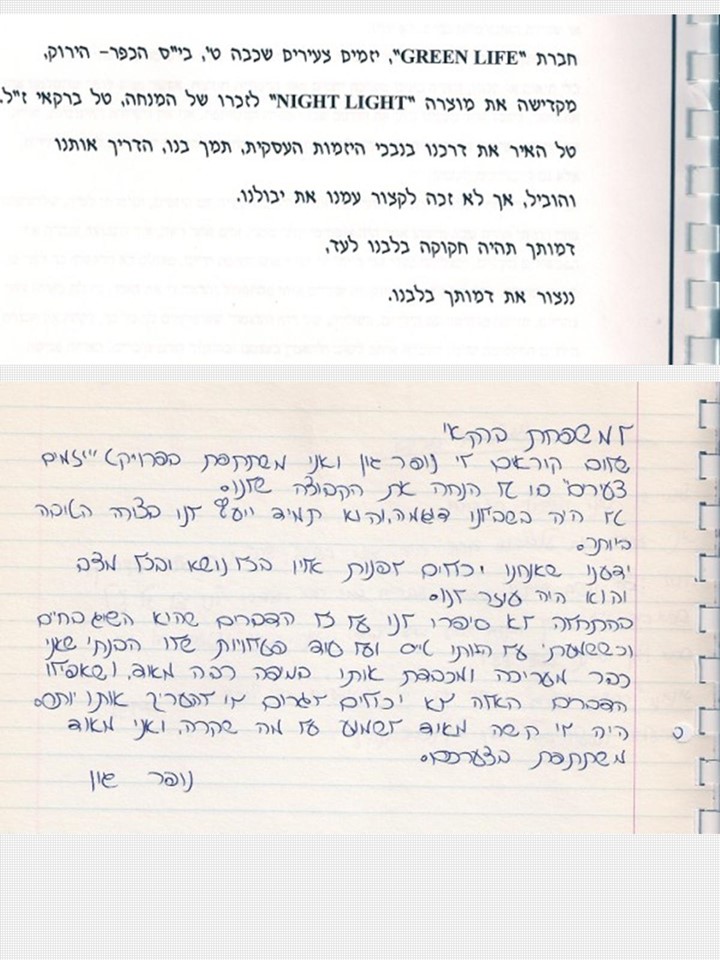 חברת "GREEN LIFE", יזמים צעירים שכבה ט', בי"ס הכפר- הירוק,
מקדישה את מוצרה "NIGHT LIGHT" לזכרו של המנחה, טל ברקאי ז"ל.
טל האיר את דרכנו בנבכי היזמות העסקית, תמך בנו, הדריך אותנו
והוביל, אך לא זכה לקצור עמנו את יבולנו.
דמותך תהיה חקוקה בלבנו לעד,
ננצור את דמותך בלבנו.
למשפחת ברקאי
שלום קוראים לי נופר גון ואני משתתפת בפרויקט "יזמים
צעירים" בו טל הנחה את הקבוצה שלנו.
טל היה בשבילנו דוגמה, והוא תמיד ייעץ לנו בצורה הטובה
ביותר.
ידענו שאנחנו יכולים לפנות אליו בכל נושא ובכל מצב
והוא היה עוזר לנו.
בהתחלה לא סיפרו לנו על כל הדברים שהוא השיג בחיים
וכששמעתי על היותו טיס ועל עוד פעילויות שלו הבנתי שאני
כבר מעריכה ומכבדת אותו במידה רבה מאוד, ושאפילו
הדברים האלה לא יכולים לגרום לי להעריך אותו יותר.
היה לי קשה מאוד לשמוע על מה שקרה, ואני מאוד
משתתפת בצערכם.
נופר גון